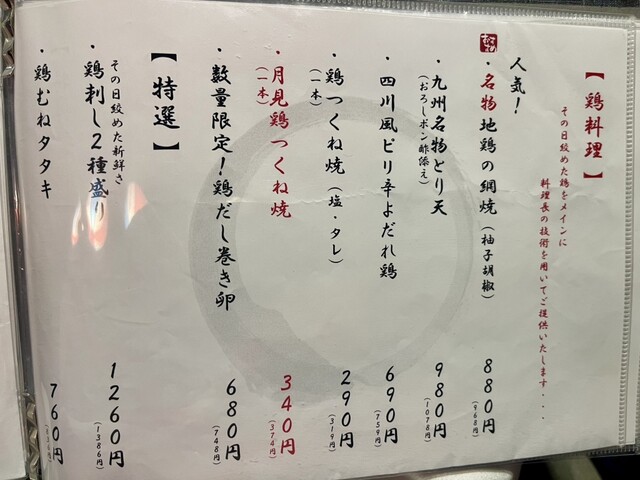 【鶏料理】
その日絞めた鶏をメインに
料理長の技術を用いてご提供いたします・・・
人気！
・名物地鶏の網焼（柚子胡椒）
880円
（968円）
・九州名物とり天
（おろしポン酢添え）
980円
（1078円）
・四川風ピリ辛よだれ鶏
690円
（759円）
・鶏つくね焼（塩・タレ）
（一本）
290円
（319円）
・月見鶏つくね焼
（一本）
340円
（374円）
・数量限定！鶏だし巻き卵
680円
（748円）
【特選】
その日絞めた新鮮さ
・鶏刺し2種盛り
1260円
（1386円）
・鶏むねタタキ
760円